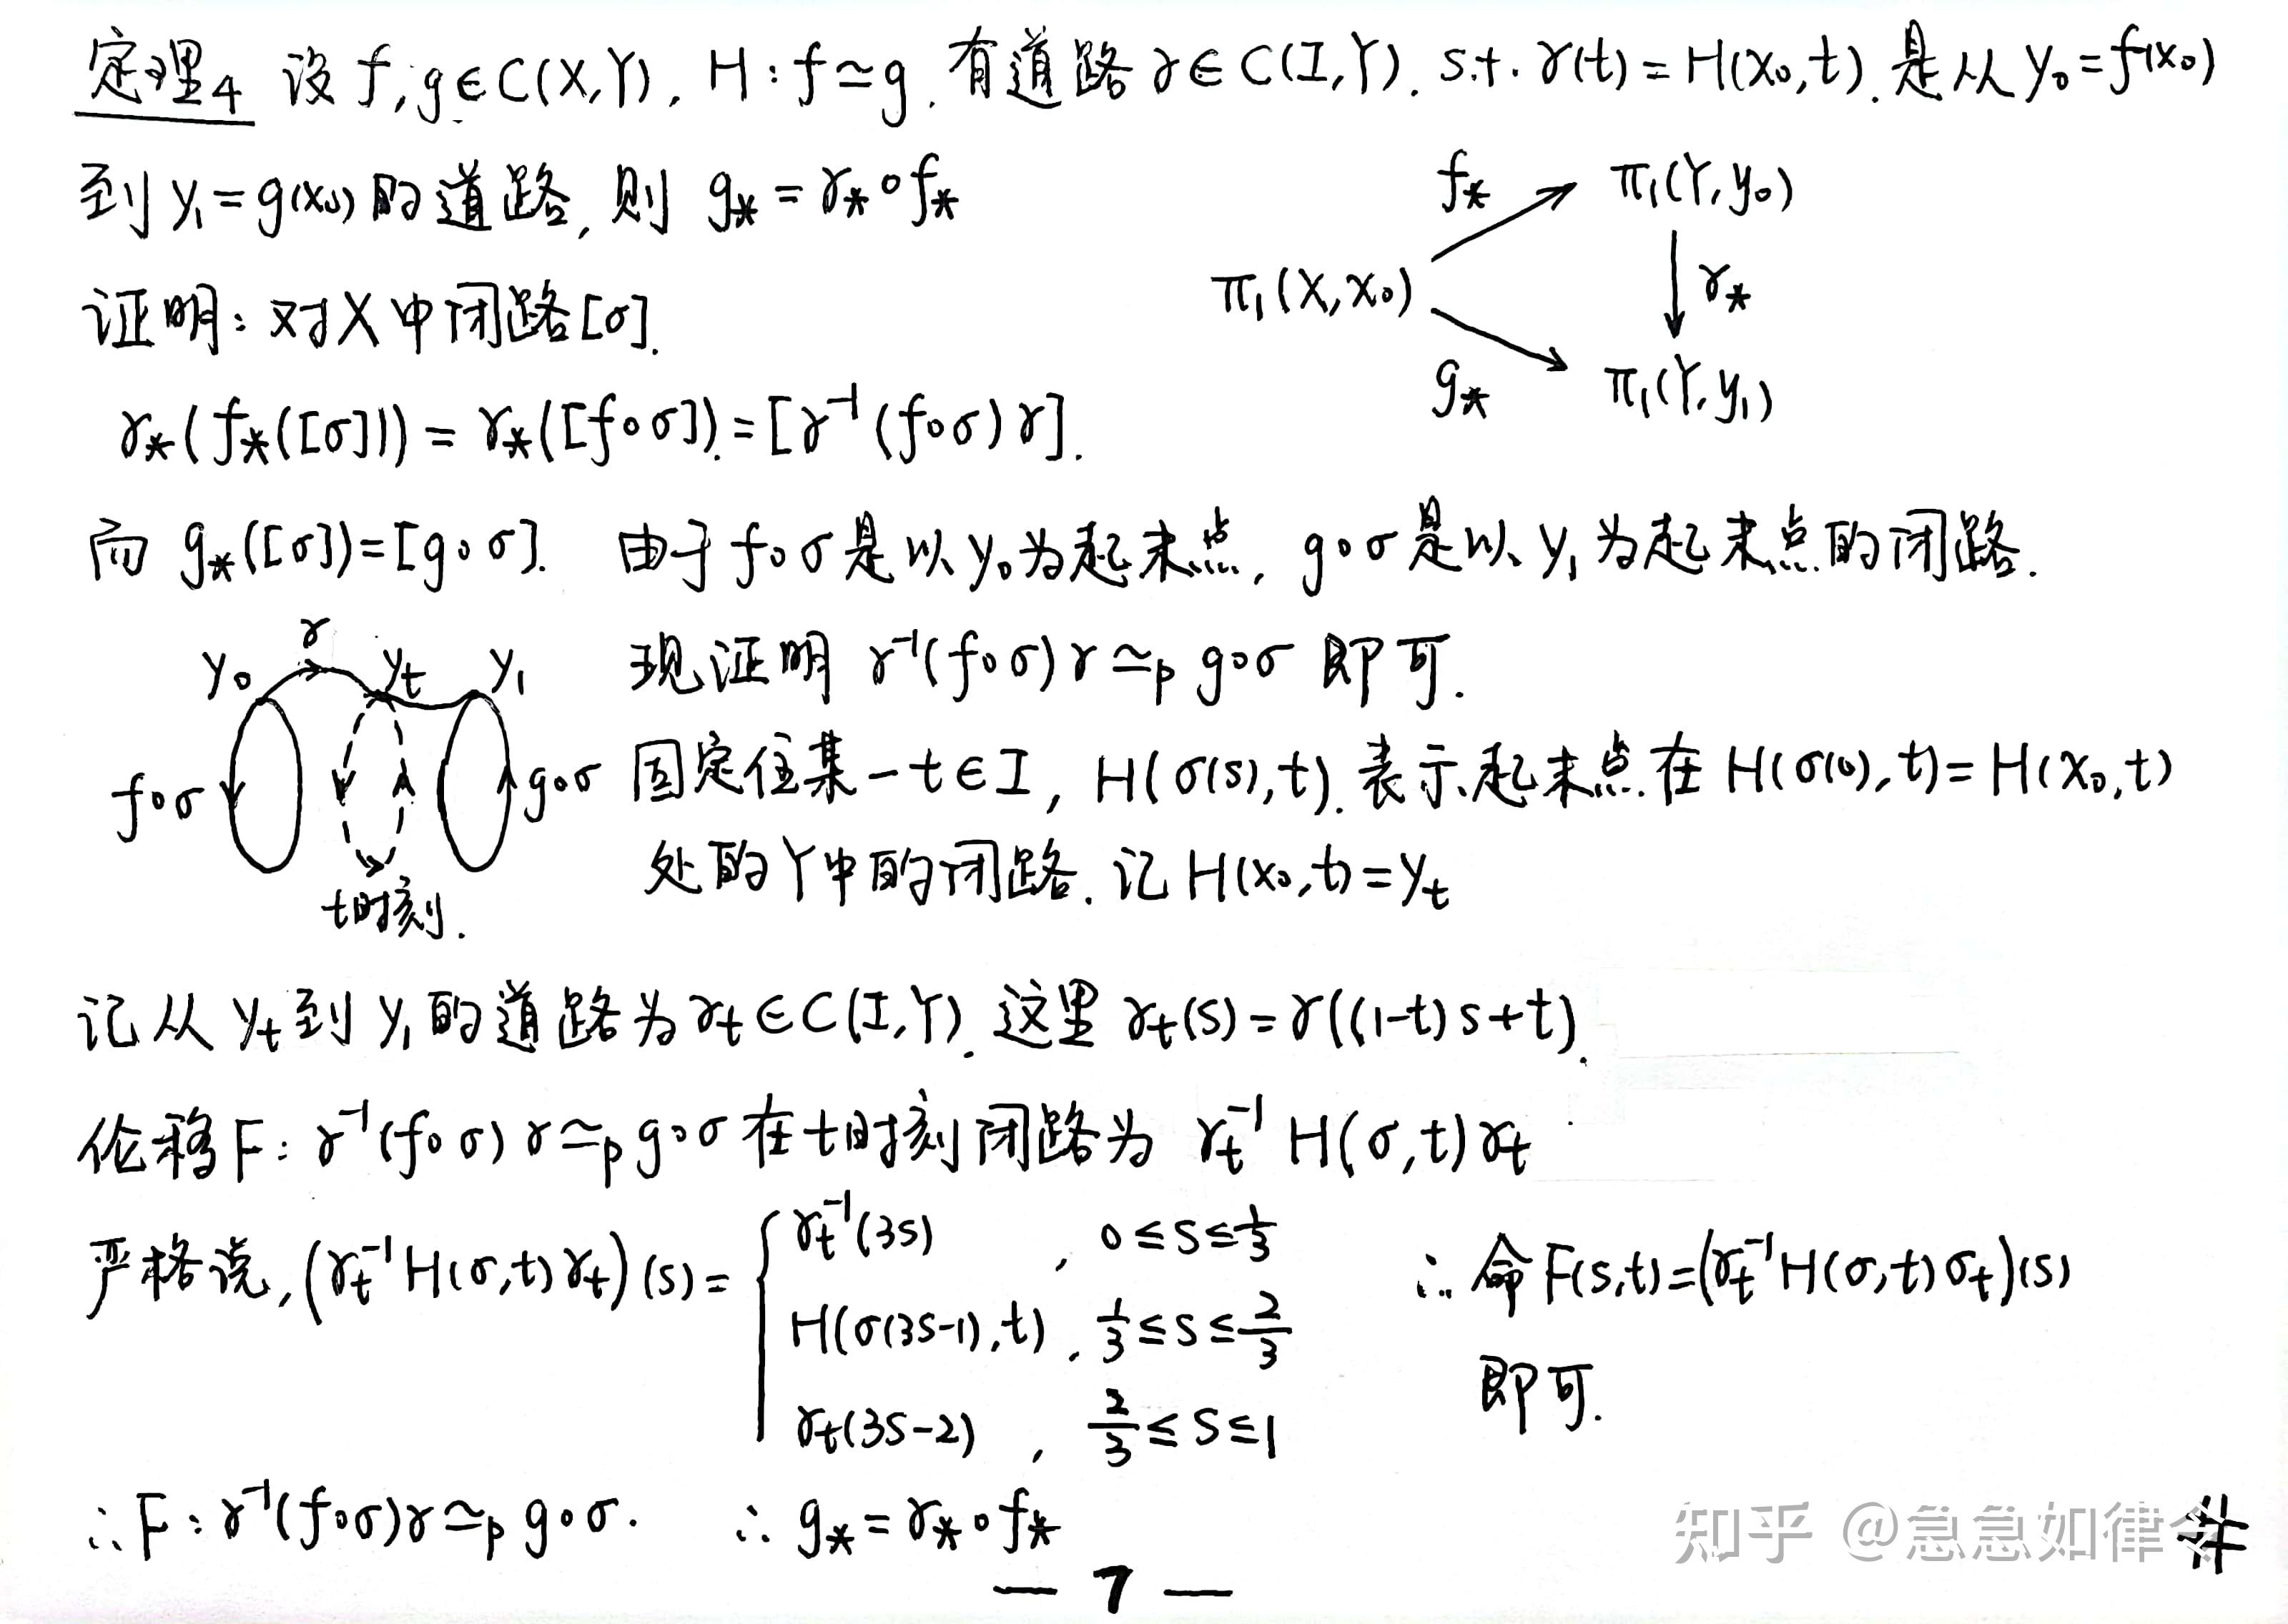 定理4 设 f, g∈C(X,Y), H: f≃g. 有道路 γ∈C(I,Y). s.t. γ(t)=H(x₀,t). 是从 y₀=f(x₀)
到 y₁=g(x₀) 的道路, 则 g_*=γ_*∘f_*
f_* π₁(Y,y₀)
π₁(X,x₀) γ_*
g_* π₁(Y,y₁)
证明: 对X中闭路[σ].
γ_*(f_*([σ]))=γ_*([f∘σ])=[γ⁻¹(f∘σ)γ].
而 g_*([σ])=[g∘σ]. 由于 f∘σ 是以 y₀ 为起末点, g∘σ 是以 y₁ 为起末点的闭路.
现证明 γ⁻¹(f∘σ)γ≃ₚ g∘σ 即可.
y₀ γ y_t y₁
f∘σ g∘σ
t时刻.
固定住某一 t∈I, H(σ(s),t). 表示起末点在 H(σ(0),t)=H(x₀,t)
处的Y中的闭路. 记 H(x₀,t)=y_t
记从 y_t 到 y₁ 的道路为 γ_t∈C(I,Y). 这里 γ_t(s)=γ((1-t)s+t).
伦移F: γ⁻¹(f∘σ)γ≃ₚ g∘σ 在t时刻闭路为 γ_t⁻¹ H(σ,t)γ_t
严格说, (γ_t⁻¹H(σ,t)γ_t)(s)= { γ_t⁻¹(3s) , 0≤s≤1/3
H(σ(3s-1),t), 1/3≤s≤2/3
γ_t(3s-2) , 2/3≤s≤1
∴ 命 F(s,t)=(γ_t⁻¹H(σ,t)σ_t)(s)
即可.
∴F: γ⁻¹(f∘σ)γ≃ₚ g∘σ. ∴ g_*=γ_*∘f_* #
— 7 —
知乎 @急急如律令